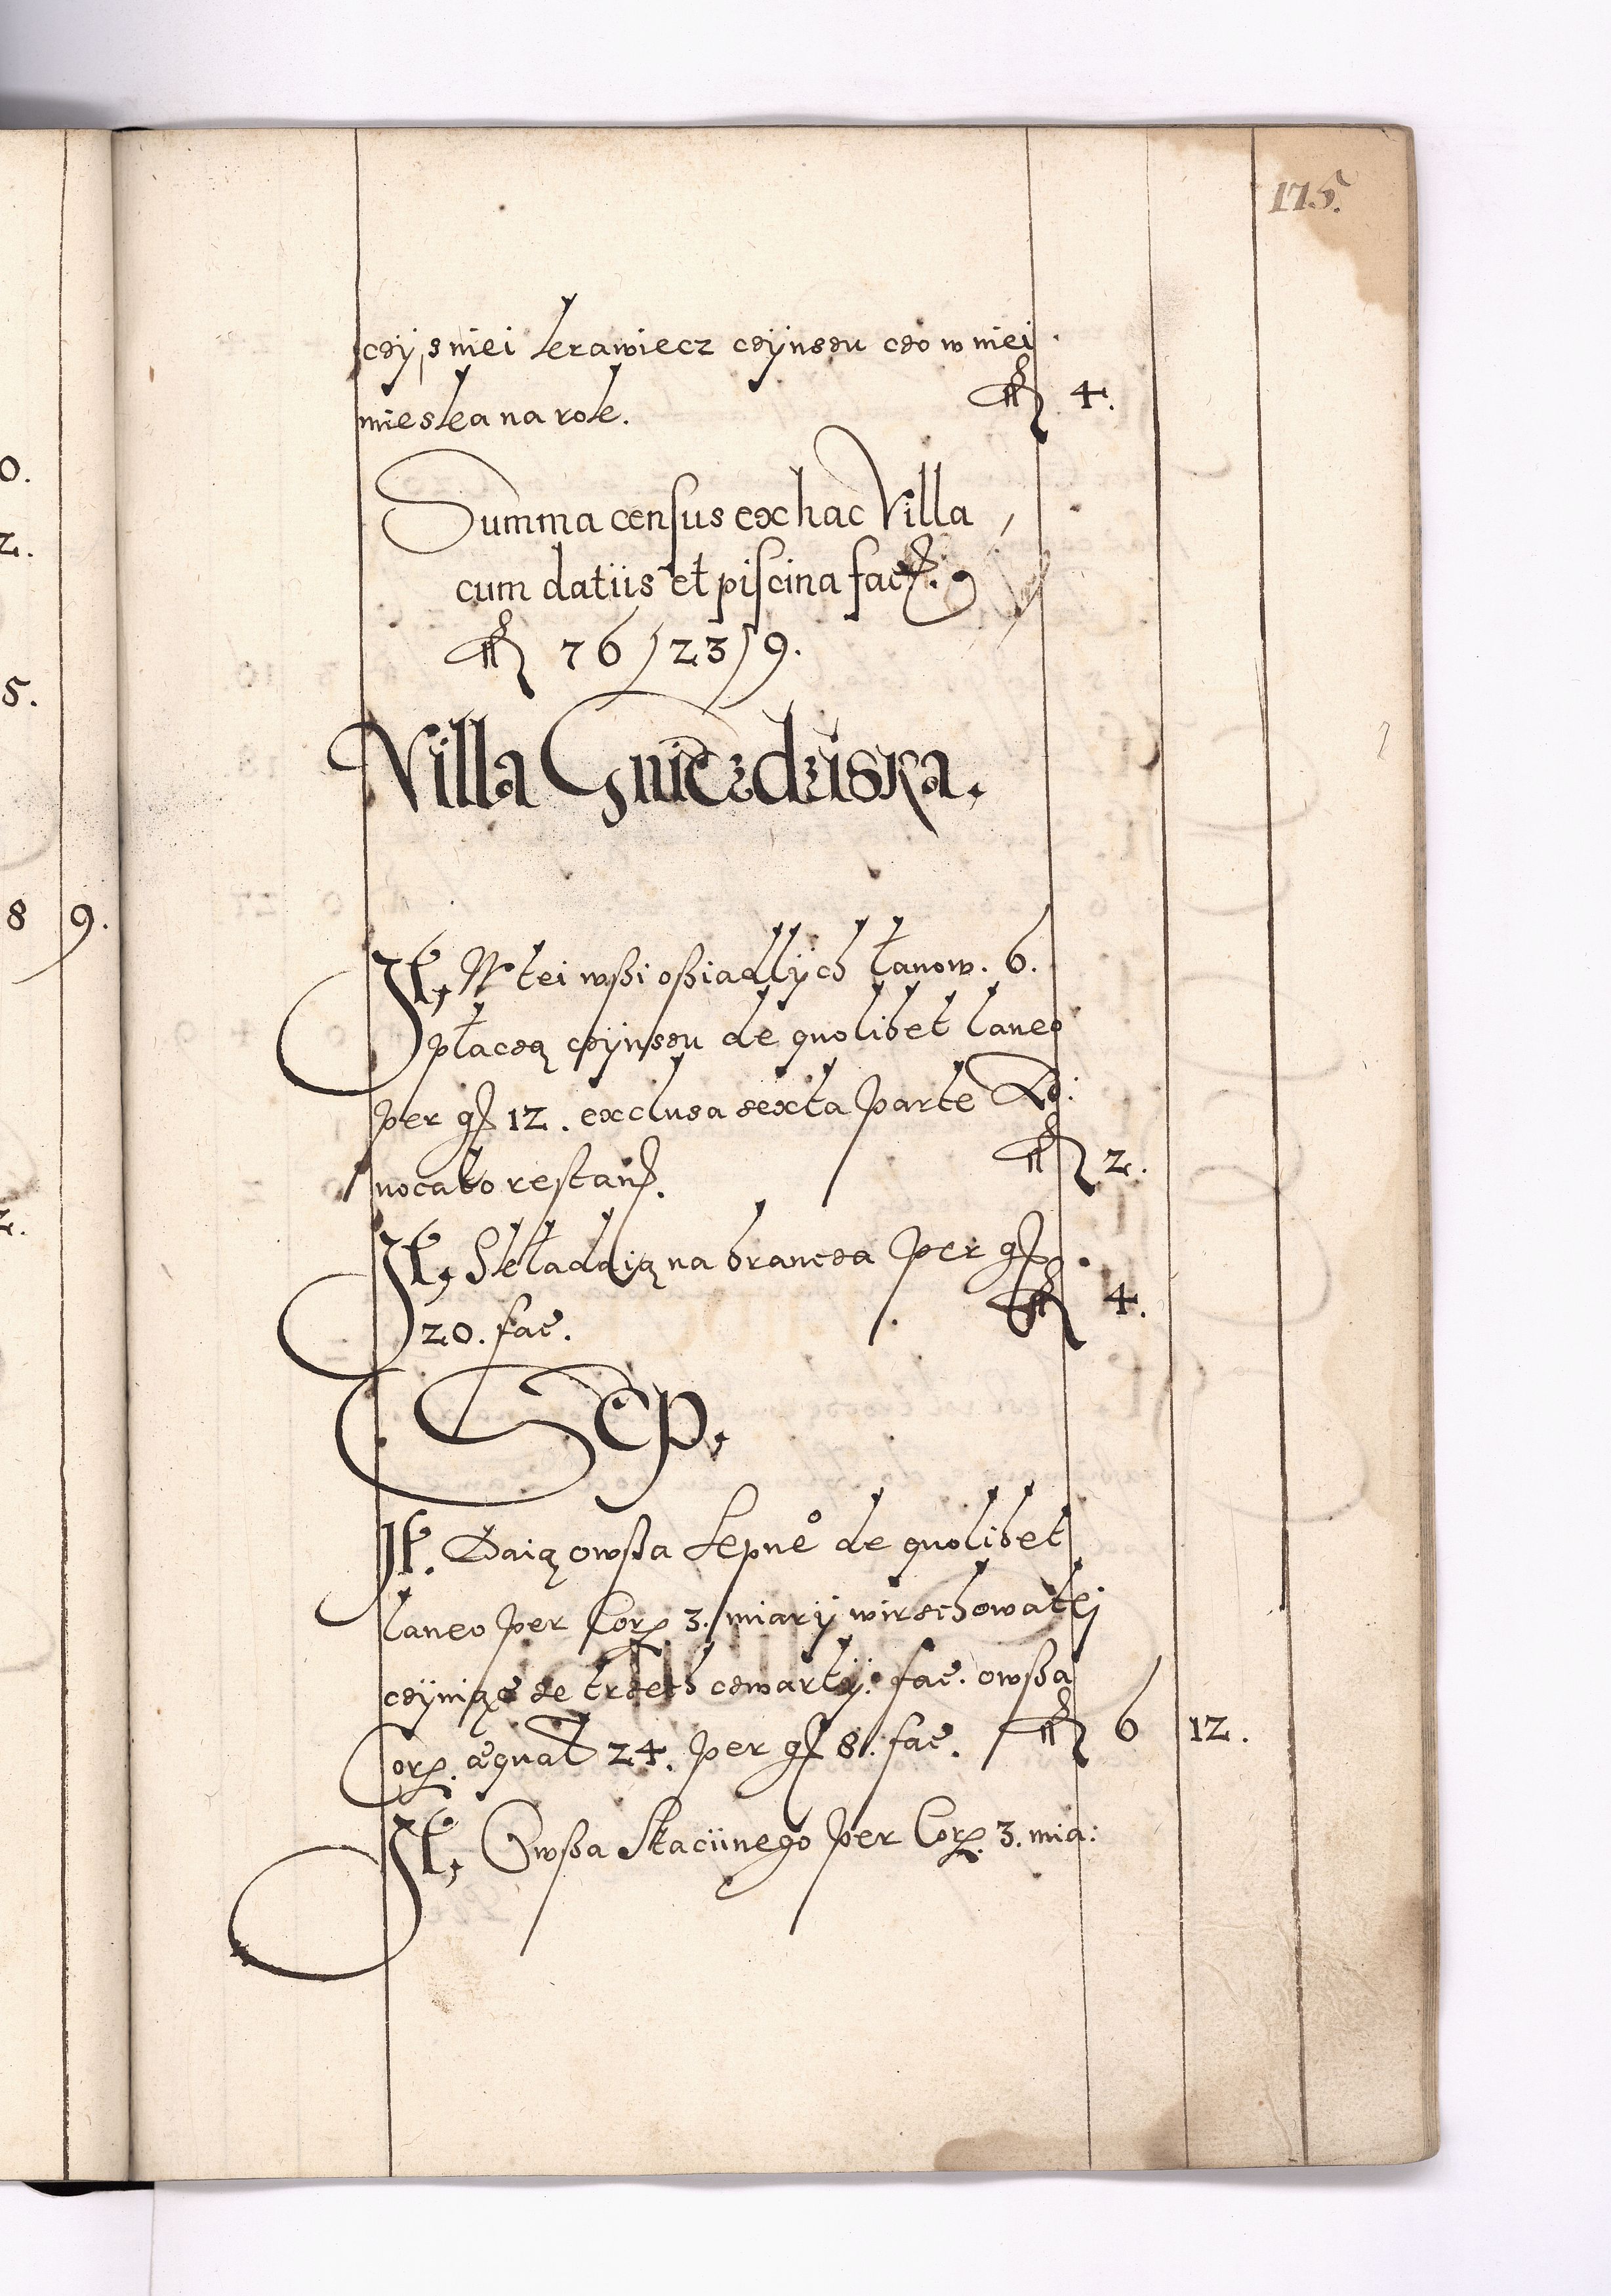 175.
czÿ, z niei krawiecz czÿnszu czo w niei
mieska na rok. fl 4.
Summa census ex hac Villa
cum datiis et piscina fac̃.
fl 76/23/9.
Villa Gniezdziska.
It, W tei wßi oßiadlÿch łanow. 6.
płaczą czÿnszu de quolibet laneo
per gr 12. exclusa sexta parte Ad:
uocato restan. fl 2.
It, Składaią na brancza per gr
20. fac̃. fl 4.
Sep.
It. Daią owßa sepne° de quolibet
laneo per Cor 3. miarÿ wirzchowatei
czÿniącz ze trzech czwartÿ: fac̃. owßa
Cor. æqual 24. per gr 8. fac̃. fl 6 12.
It, Owßa Staciinego per Cor 3. mia:
0.
2.
5.
8 9.
2.